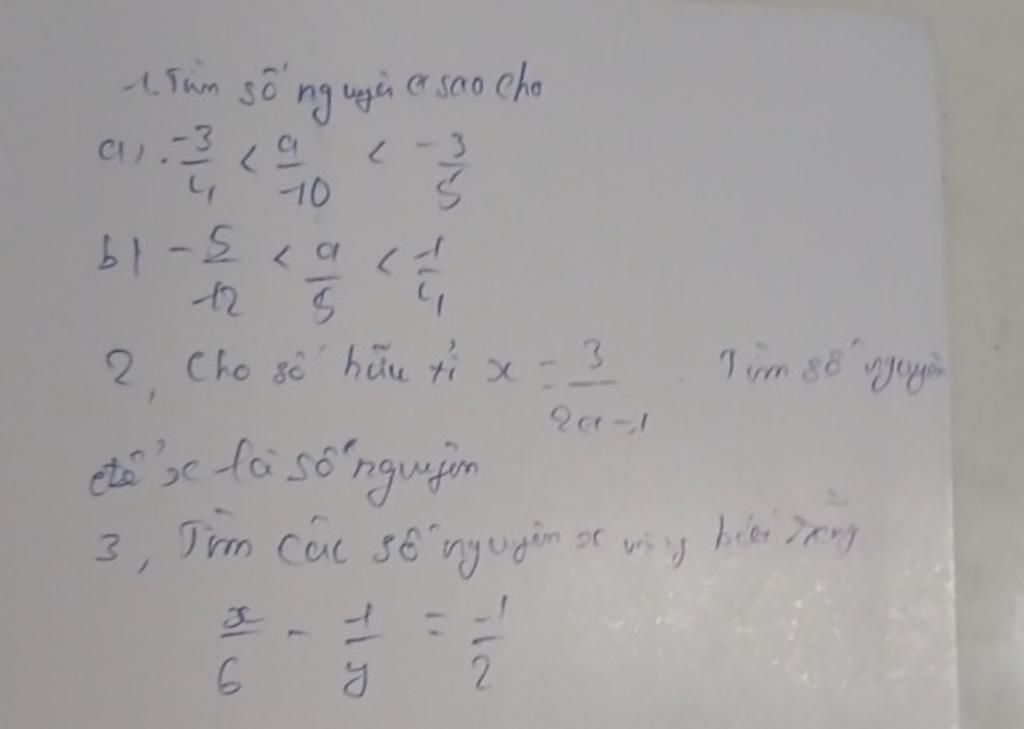 1. Tìm số nguyên a sao cho
a). -3/4 < a/10 < -3/5
b) -5/12 < a/5 < 1/4
2, Cho số hữu tỉ x = 3/2a-1. Tìm số nguyên
để x là số nguyên
3, Tìm các số nguyên x và y biết rằng
x/6 - 1/y = 1/2